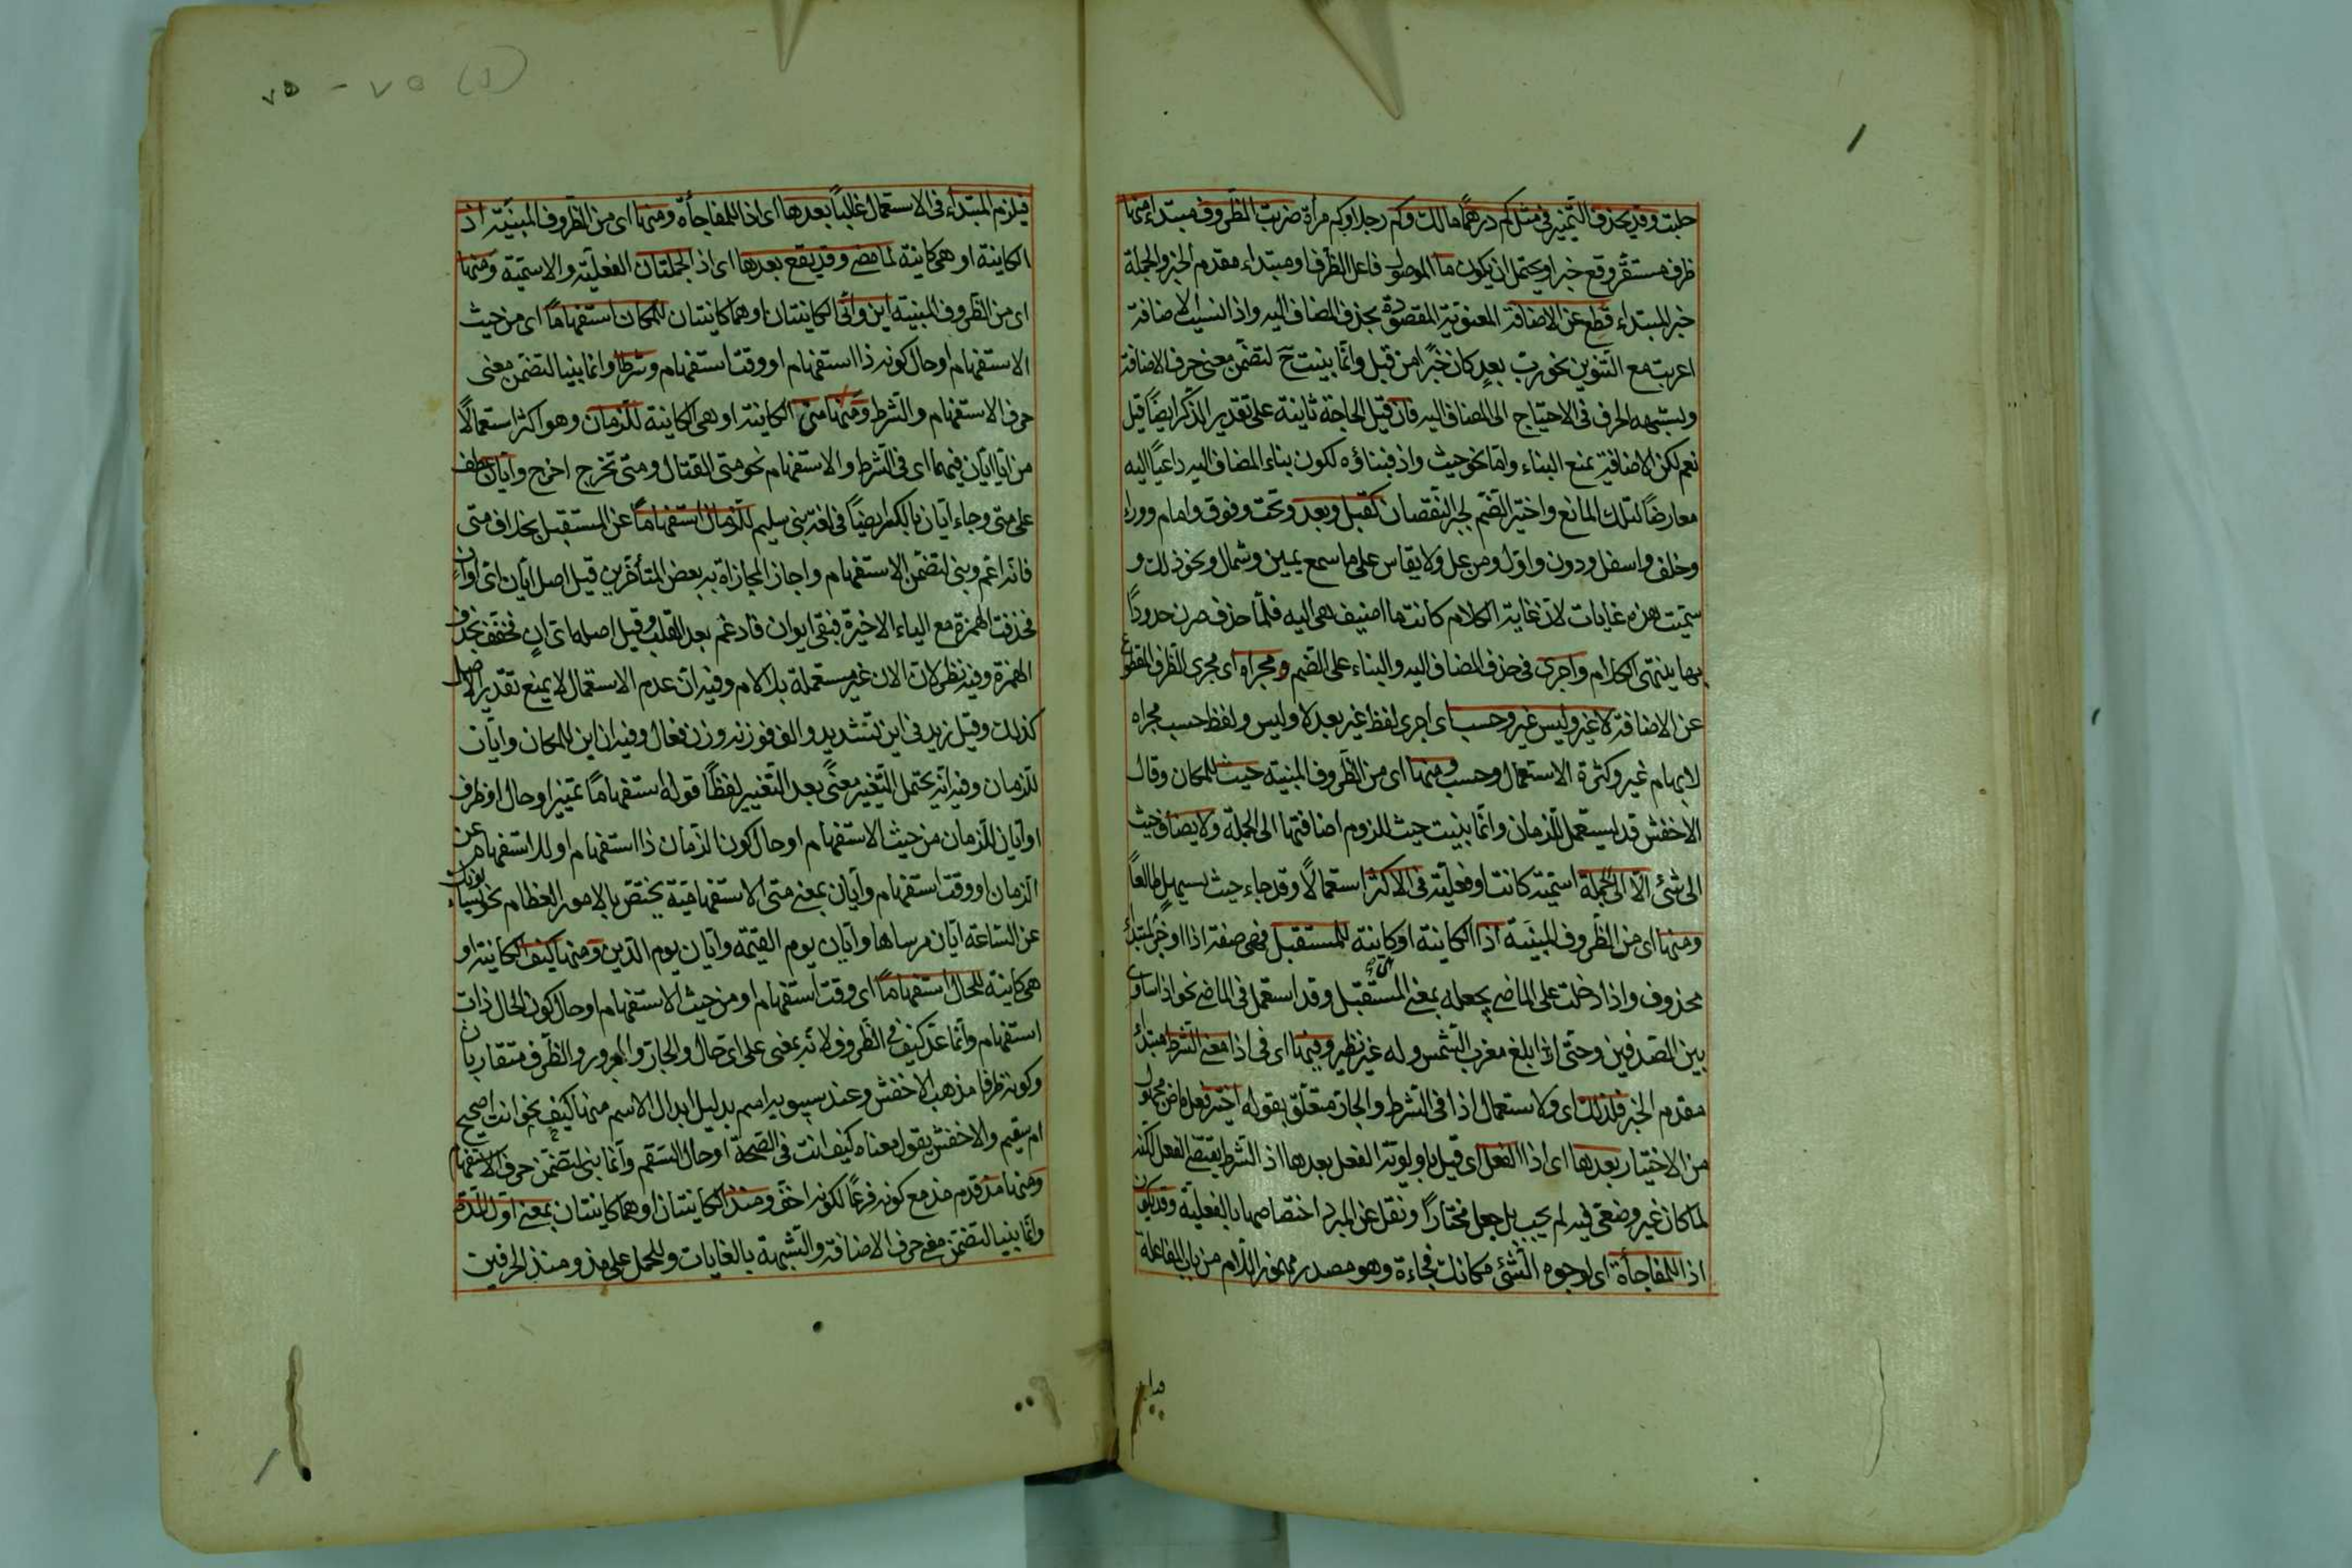 حلبت وقد يحذف التميز فى مثل كم درهما مالك وكم رجلا وكم مراة ضربت الظروف مبتداء منها
ظرف مستقر وقع خبرا ويحتمل ان يكون ما الموصول فاعل الظرف او مبتداء مقدم الخبر والجملة
خبر المبتداء قطع عن الاضافة المعنوية المقصودة بحذف المضاف اليه واذا نسيت الاضافة
اعربت مع التنوين نحو رب بعدٍ كان خيرًا من قبل وانّما بنيت ح لتضمن معنى حرف الاضافة
ولشبهه الحرف فى الاحتياج الى المضاف اليه فان قيل الحاجة ثابتة على تقدير الذكر ايضًا قيل
نعم لكن الاضافة يمنع البناء وامّا نحو حيث واذ فبناؤه لكون بناء المضاف اليه داعيًا اليه
معارضًا لتلك المانع واختير الضم لجبر النقصان كقبل وبعد وتحت وفوق وامام ووراء
وخلف واسفل ودون واوّل ومن عل ولا يقاس على ما سمع يمين وشمال ونحو ذلك و
سمّيت هذه غايات لان غاية الكلام كانت ما اضيف هى اليه فلمّا حذف صرن حدودًا
بها ينتهى الكلام واجرى فى حذف المضاف اليه والبناء على الضم ومجراه اى مجرى الظرف المقطوع
عن الاضافة لا غير وليس غير وحسب اى اجرى لفظ غير بعد لا وليس ولفظ حسب مجراه
لابهام غير وكثرة الاستعمال وحسب ومنها اى من الظروف المبنية حيث للمكان وقال
الاخفش قد يستعمل للزمان وانّما بنيت حيث للزوم اضافتها الى الجملة ولا يضاف حيث
الى شئ الّا الى الجملة اسمية كانت او فعلية فى الاكثر استعمالًا وقد جاء حيث سهيلٍ طالعًا
ومنها اى من الظروف المبنية اذا الكائنة او كائنة للمستقبل فهى صفة اذا او خبر لمبتدأ
محذوف واذا دخلت على الماضى يجعله بمعنى المستقبل وقد استعمل فى الماضى نحو اذا ساوى
بين الصدفين وحتى اذا بلغ مغرب الشمس وله غير نظير وفيها اى فى اذا معنى الشرط مبتدأ
مقدم الخبر فلذلك اى ولاستعمال اذا فى الشرط والجار متعلق بقوله اختير فعل ماض مجهول
من الاختيار بعدها اى اذا الفعل اى قيل باولوية الفعل بعدها اذ الشرط يقتضى الفعل لكنه
لما كان غير وضعى فيه لم يجب بل جعل مختارًا ونقل عن المبرد اختصاصها بالفعلية وقد يكون
اذا للمفاجأة اى لوجود الشئ مكانك فجاءة وهو مصدر مهموز اللام من باب المفاعلة
فيلزم المبتداء فى الاستعمال غالبًا بعدها اى اذا للمفاجأة ومنها اى من الظروف المبنيّة اذ
الكاينة او هى كاينة لما مضى وقد يقع بعدها اى اذ الجملتان الفعليّة والاسميّة ومنها
اى من الظروف المبنية اين وانّى الكاينتان او هما كاينتان للمكان استفهامًا اى من حيث
الاستفهام او حال كونه ذا استفهام او وقت استفهام وشرطا وانما بنيا لتضمن معنى
حرف الاستفهام والشرط ومنها متى الكاينة او هى الكاينة للزمان وهو اكثر استعمالًا
من ايّا ايّان فيهما اى فى الشرط والاستفهام نحو متى القتال ومتى تخرج اخرج وايّان عطف
على متى وجاء ايّان بالكسر ايضًا فى لغة بنى سليم للزمان استفهامًا عن المستقبل بخلاف متى
فانه اعم وبنى لتضمن الاستفهام واجاز المجازاة به بعض المتأخرين قيل اصل ايّان اى اوان
فحذفت الهمزة مع الياء الاخيرة فبقى ايوان فادغم بعد القلب وقيل اصله اى ان فخفف بحذف
الهمزة وفيه نظر لان الان غير مستعملة بلا لام وفيه ان عدم الاستعمال لا يمنع تقدير الاصل
كذلك وقيل زيد فى اين تشديد والف فوزنه وزن فعال وفيه ان اين للمكان وايّان
للزمان وفيه انه يحتمل التغير معنًى بعد التغيير لفظًا قوله استفهامًا تمييز او حال او ظرف
او ايّان للزمان من حيث الاستفهام او حال كون الزمان ذا استفهام او للاستفهام عن
الزمان او وقت استفهام وايّان بمعنى متى الاستفهاميّة يختصّ بالامور العظام نحو يسئلونك
عن الساعة ايّان مرساها وايّان يوم القيمة وايّان يوم الدين ومنها كيف الكاينة او
هى كاينة للحال استفهامًا اى وقت استفهام او من حيث الاستفهام او حال كون الحال ذات
استفهام وانّما عدّ كيف فى الظروف لانّه بمعنى على اى حال والجار والمجرور والظرف متقاربان
وكونه ظرفا مذهب الاخفش وعند سيبويه اسم بدليل ابدال الاسم منها كيف نحو انت اصحيح
ام سقيم والاخفش يقول معناه كيف انت فى الصحة او حال السقم وانّما بنى لتضمن حرف الاستفهام
ومنها مذ قدم مذ مع كونه فرعًا لكونه اخف ومنذ الكاينتان او هما كاينتان بمعنى اوّل المدة
وانّما بنيا لتضمن معنى حرف الاضافة والشبهة بالغايات وللحمل على مذ ومنذ الحرفين